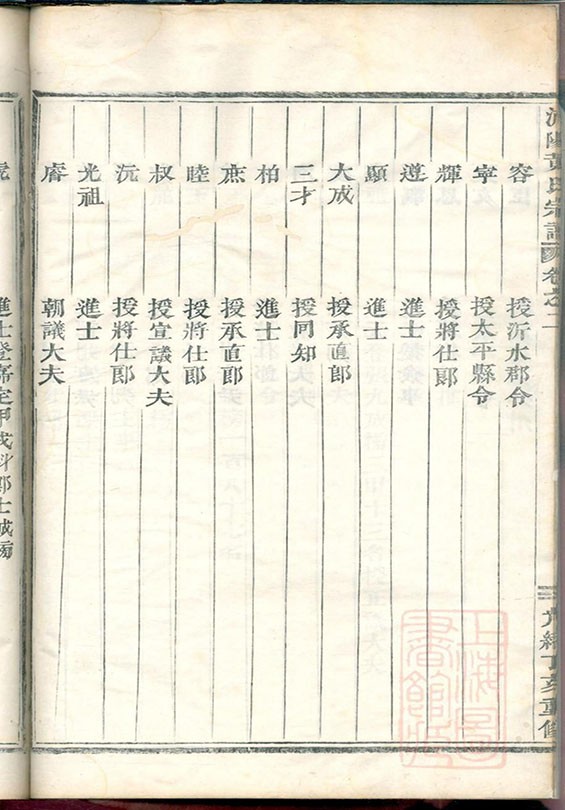 陽黃氏宗譜 卷之二
光緒丁亥重修
容 授沂水郡令
寧 授太平縣令
輝 授將仕郎
遵 進士
顯 進士
大成 授承直郎
三才 授同知
柏 進士
庶 授承直郎
睦 授將仕郎
叔 授宣議大夫
沅 授將仕郎
光祖 進士
膺 朝議大夫
進士登嘉定甲戌科
上海圖書館藏